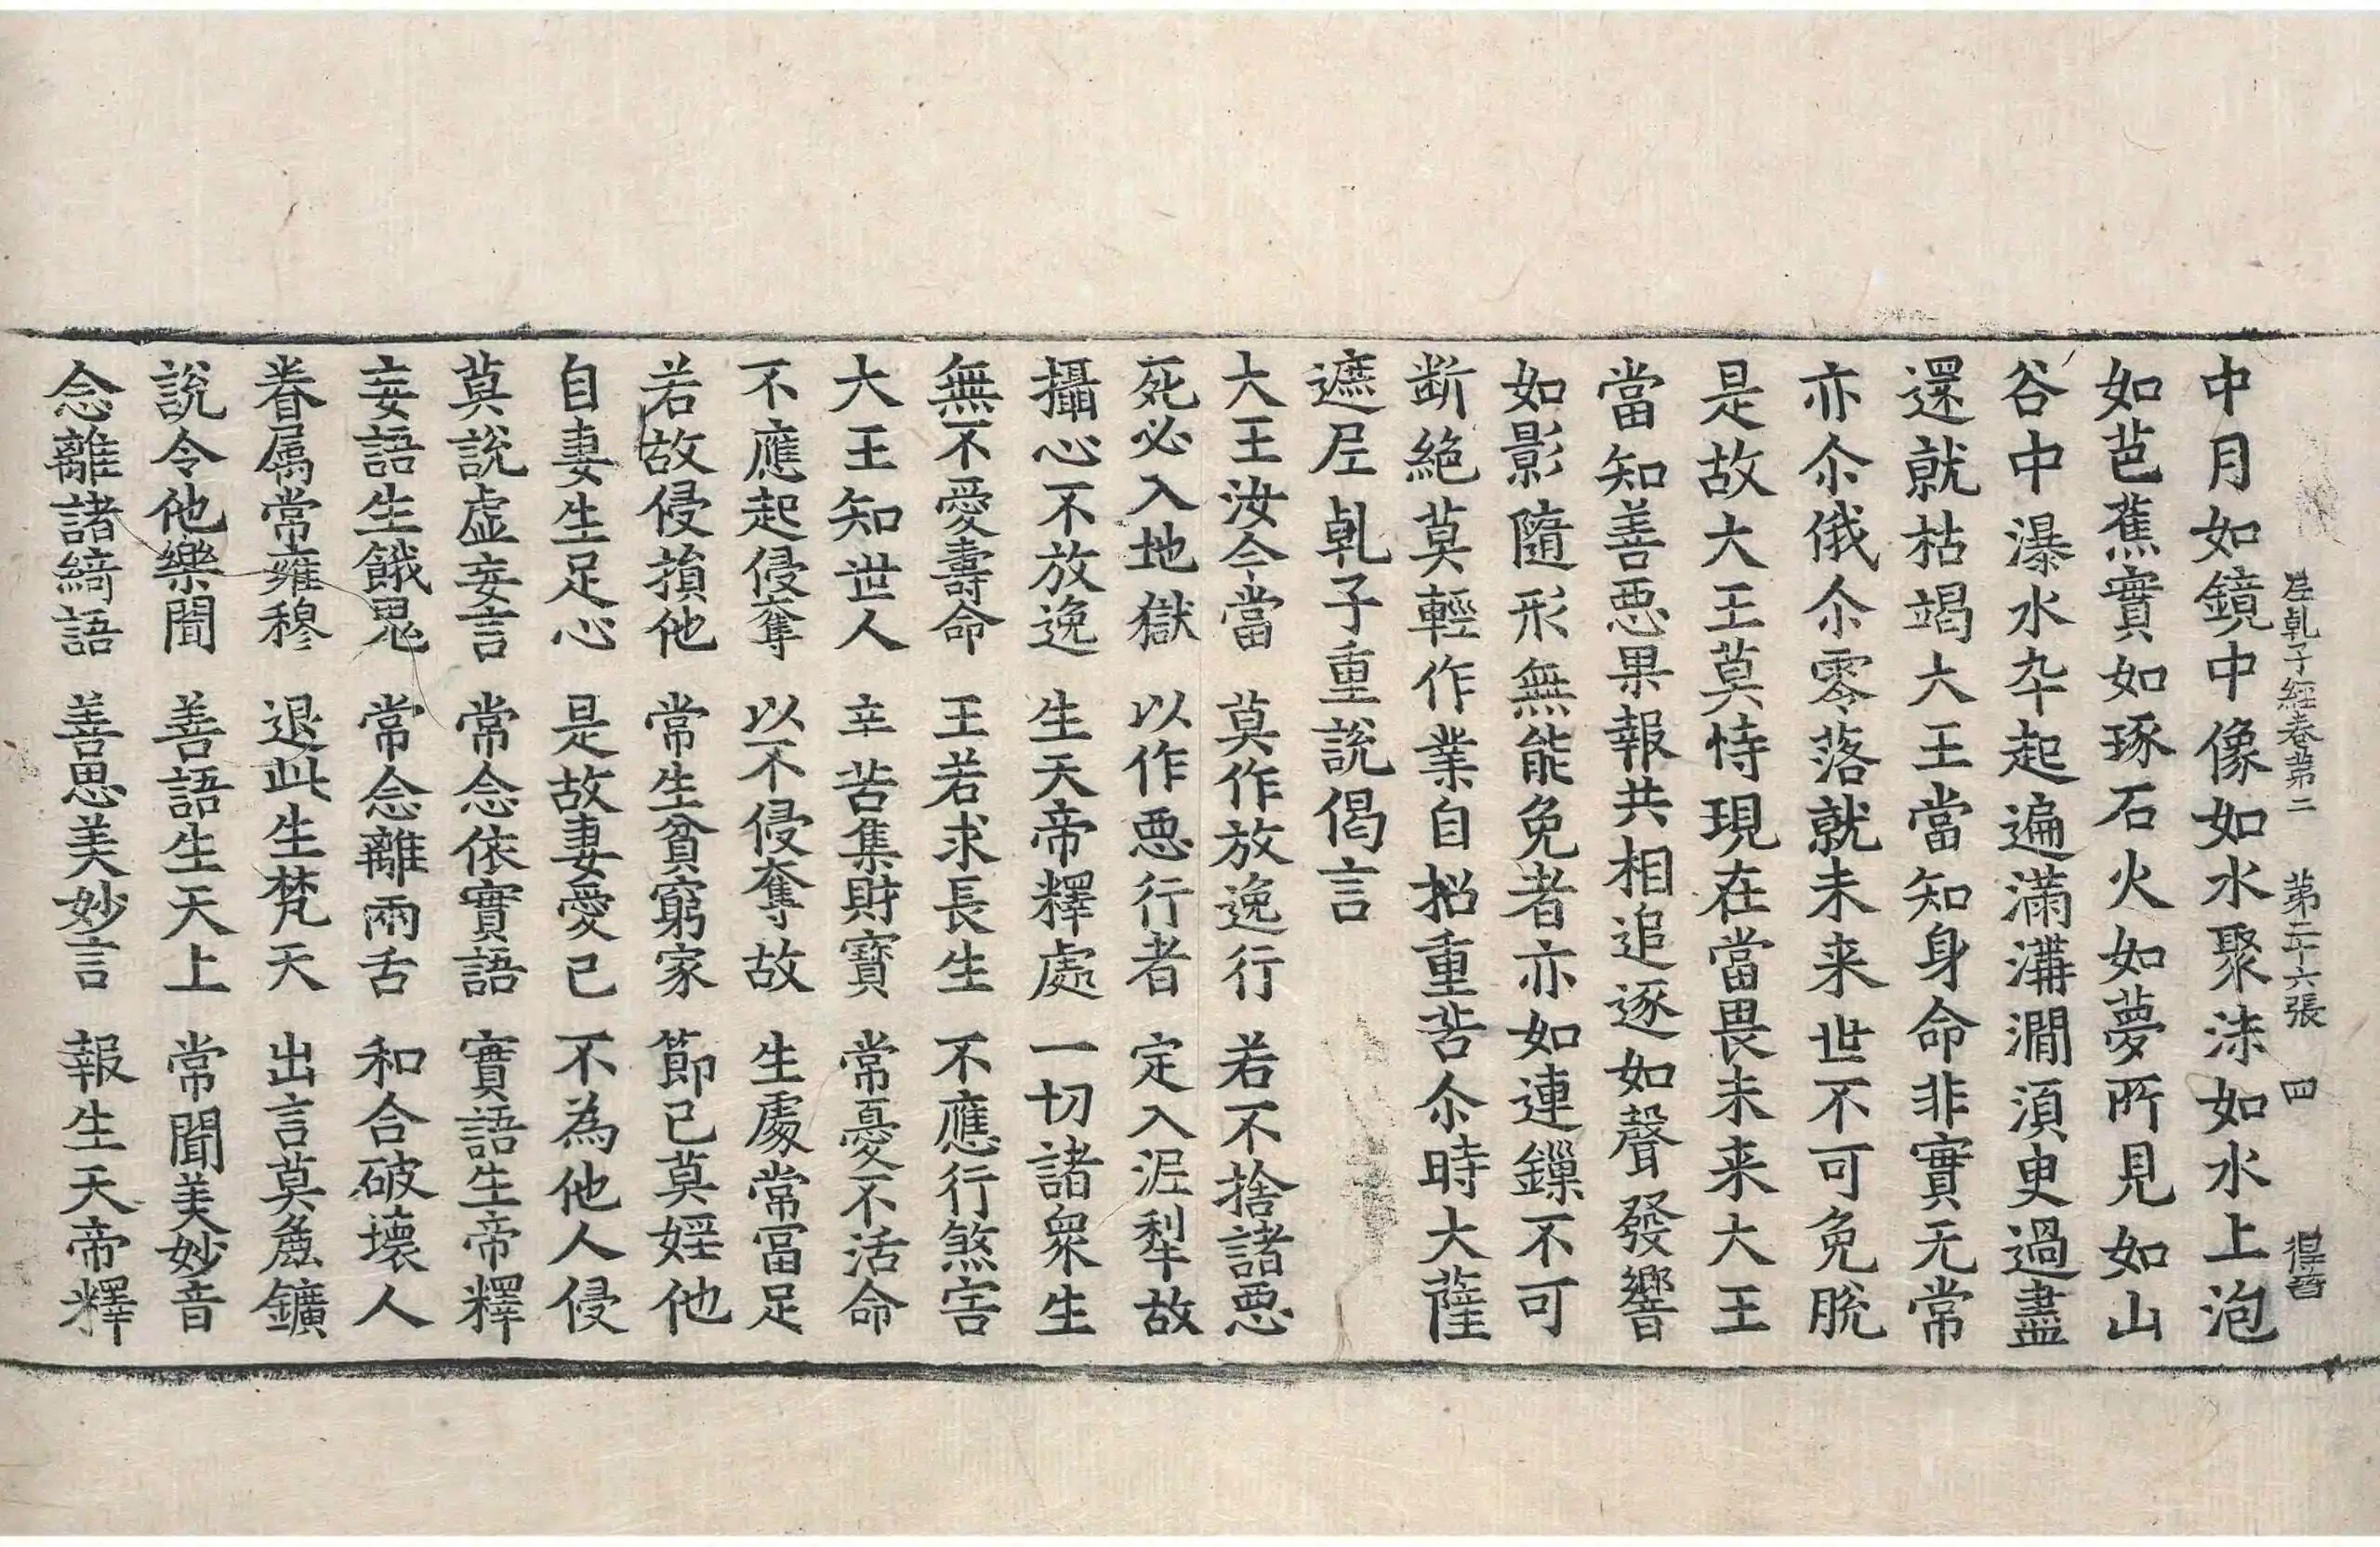 𡰱乹子經卷苐二　苐二十六張　四
中月如鏡中像如水聚沫如水上泡
如芭蕉實如琢石火如夢所見如山
谷中瀑水卒起遍滿溝澗須臾過盡
還就枯竭大王當知身命非實无常
亦尒俄尒零落就未来世不可免脫
是故大王莫恃現在當畏未来大王
當知善惡果報共相追逐如聲發響
如影隨形無能免者亦如連鏁不可
断絕莫輕作業自招重苦尒時大薩
遮𡰱乹子重說偈言
大王汝今當　莫作放逸行　若不捨諸惡
死必入地獄　以作惡行者　定入泥犁故
攝心不放逸　生天帝釋處　一切諸衆生
無不愛壽命　王若求長生　不應行煞害
大王知世人　辛苦集財寶　常憂不活命
不應起侵奪　以不侵奪故　生處常富足
若故侵損他　常生貧窮家　節己莫婬他
自妻生足心　是故妻愛己　不為他人侵
莫說虛妄言　常念依實語　實語生帝釋
妄語生餓鬼　常念離兩舌　和合破壞人
眷属常雍穆　退此生梵天　出言莫麁鑛
說令他樂聞　善語生天上　常聞美妙音
念離諸綺語　善思美妙言　報生天帝釋